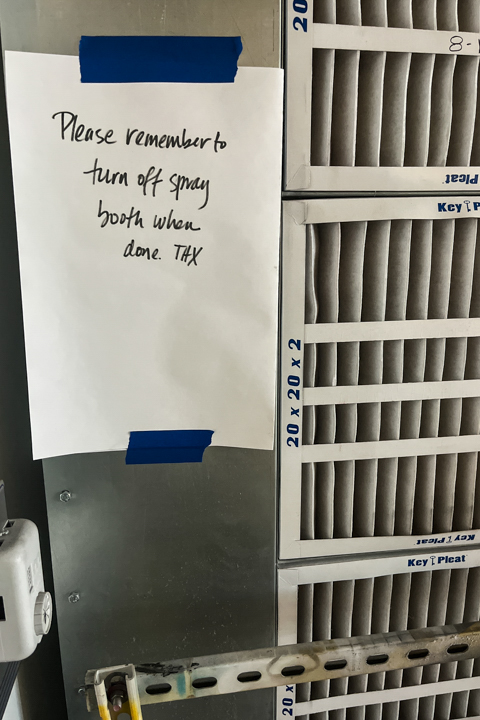 Please remember to
turn off spray
booth when
done. THX
20
8-
Pleat
Key Pl
20 x 20 x 2
Key Pleat
Key Pleat
20 x